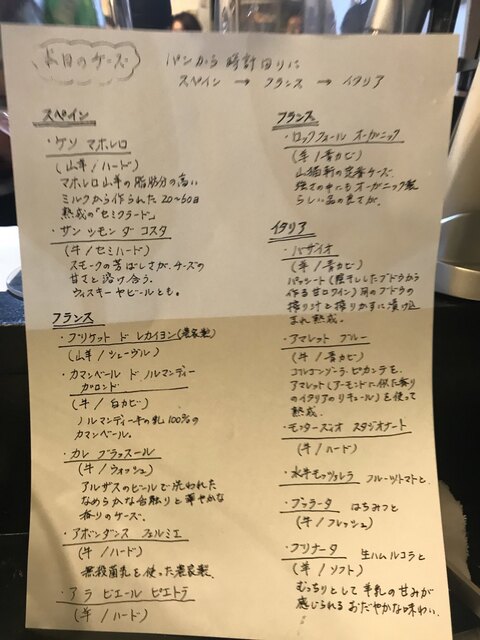 本日のチーズ
パンから時計回りに
スペイン → フランス → イタリア
スペイン
・ケソ マホレロ
(山羊/ハード)
マホレロ山羊の脂肪分の高い
ミルクから作られた20~50日
熟成の「セミクラード」
・サン シモン ダ コスタ
(牛/セミハード)
スモークの香ばしさが、チーズの
甘さと溶け合う。
ウィスキーやビールとも。
フランス
・ブリケット ド レカイヨン(農家製)
(山羊/シェーヴル)
・カマンベール ド ノルマンディー
(牛/白カビ)
ノルマンディーの乳100%の
カマンベール。
・カレ ブラッスール
(牛/ウォッシュ)
アルザスのビールで洗われた
なめらかな舌触りと華やかな
香りのチーズ。
・アボンダンス フェルミエ
(牛/ハード)
無殺菌乳を使った農家製。
・アラ ピエール ピエトラ
(牛/ハード)
フランス
・ロックフォール オーガニック
(羊/青カビ)
強さの中にもオーガニック製
らしい品の良さが。
イタリア
・バザイオ
(羊/青カビ)
パッシート(陰干ししたブドウから
作る甘口ワイン)用のブドウの
搾り汁と搾りかすに漬け込
まれ熟成。
・アマレット ブルー
(牛/青カビ)
ゴルゴンゾーラ ピカンテを、
アマレット(アーモンドに似た香り
のイタリアのリキュール)を使って
熟成。
スタジオナート
(牛/ハード)
・水牛モッツァレラ フルーツトマトと
・ブッラータ はちみつと
(牛/フレッシュ)
・クリナータ 生ハムルコラと
(羊/ソフト)
むっちりとして羊乳の甘みが
感じられるおだやかな味わい。